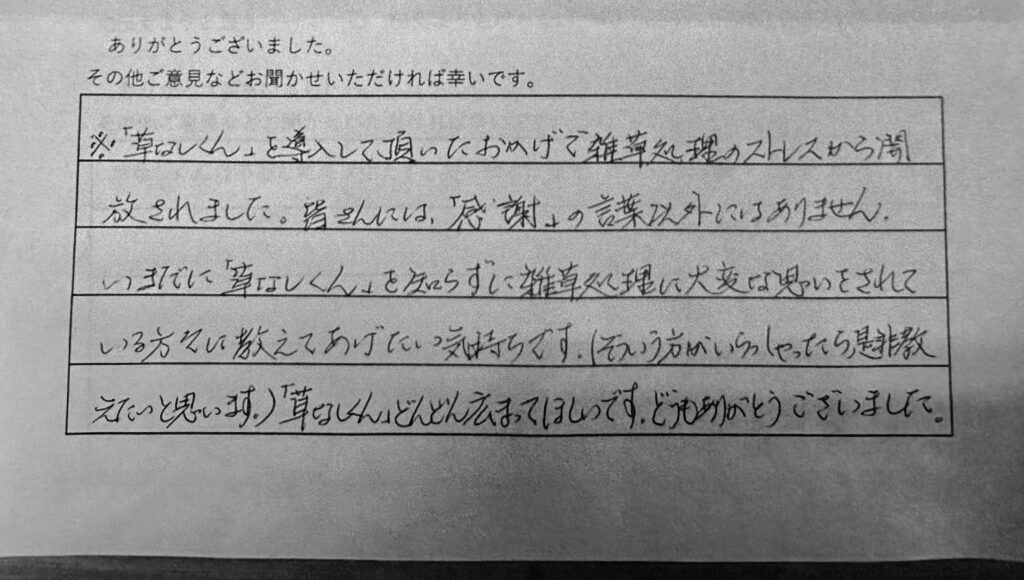 ありがとうございました。
その他ご意見などお聞かせいただければ幸いです。
※「草なしくん」を導入して頂いたおかげで雑草処理のストレスから開
放されました。皆さんには、「感謝」の言葉以外にはありません.
いまだに「草なしくん」を知らずに雑草処理に大変な思いをされて
いる方々に教えてあげたい気持ちです.(そういう方がいらっしゃったら是非教
えたいと思います。)「草なしくん」どんどん広まってほしいです.どうもありがとうございました。